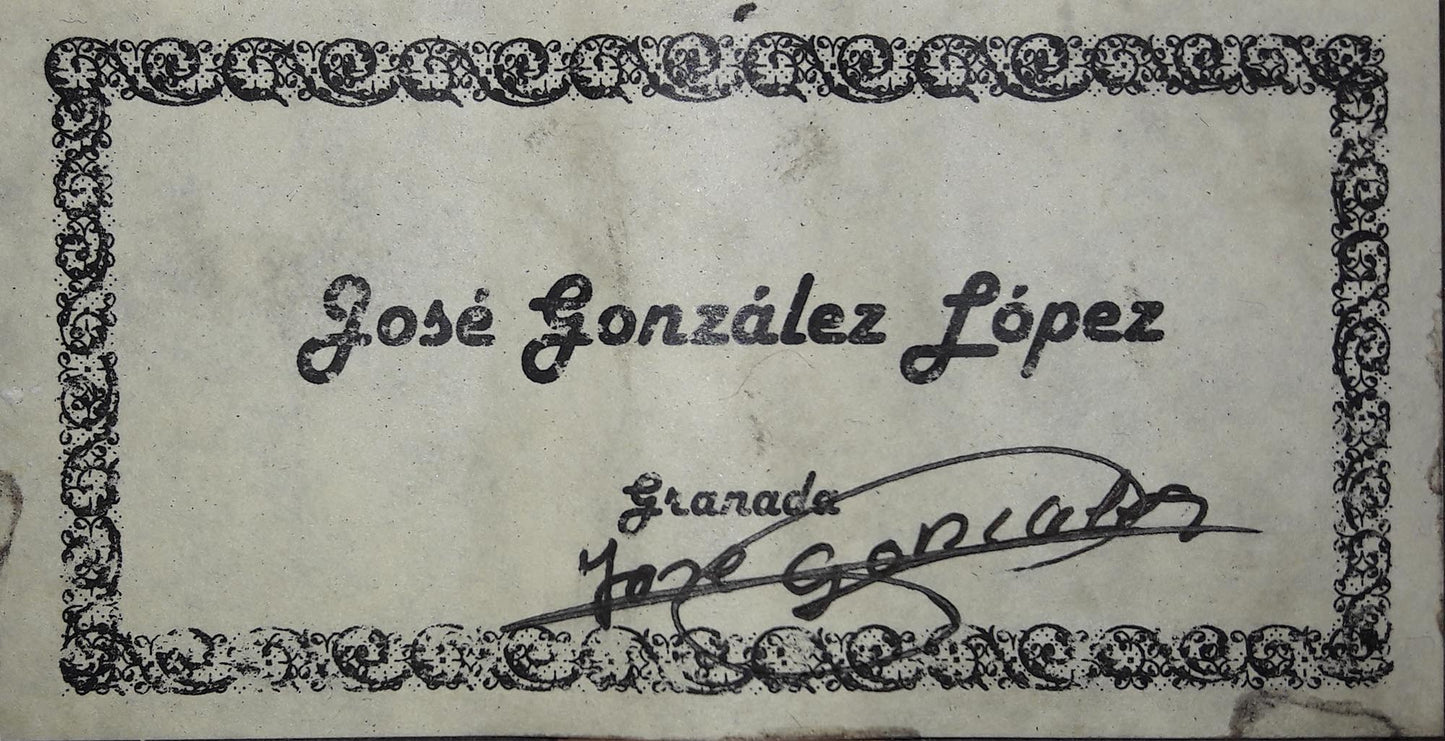 José González López
Granada
Jose Gonzalez